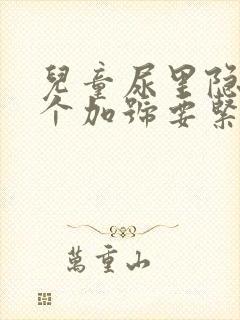 兒童尿里隐
个加號要緊
萬重山